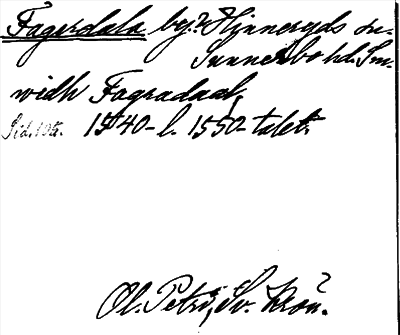 Fagerdala by? Hinneryds sn.
Sunnerbo hd. Sm.
widh Fagradaal,
Sid. 105. 1540- l. 1550-talet.
Ol. Petri, Sv. Krön.